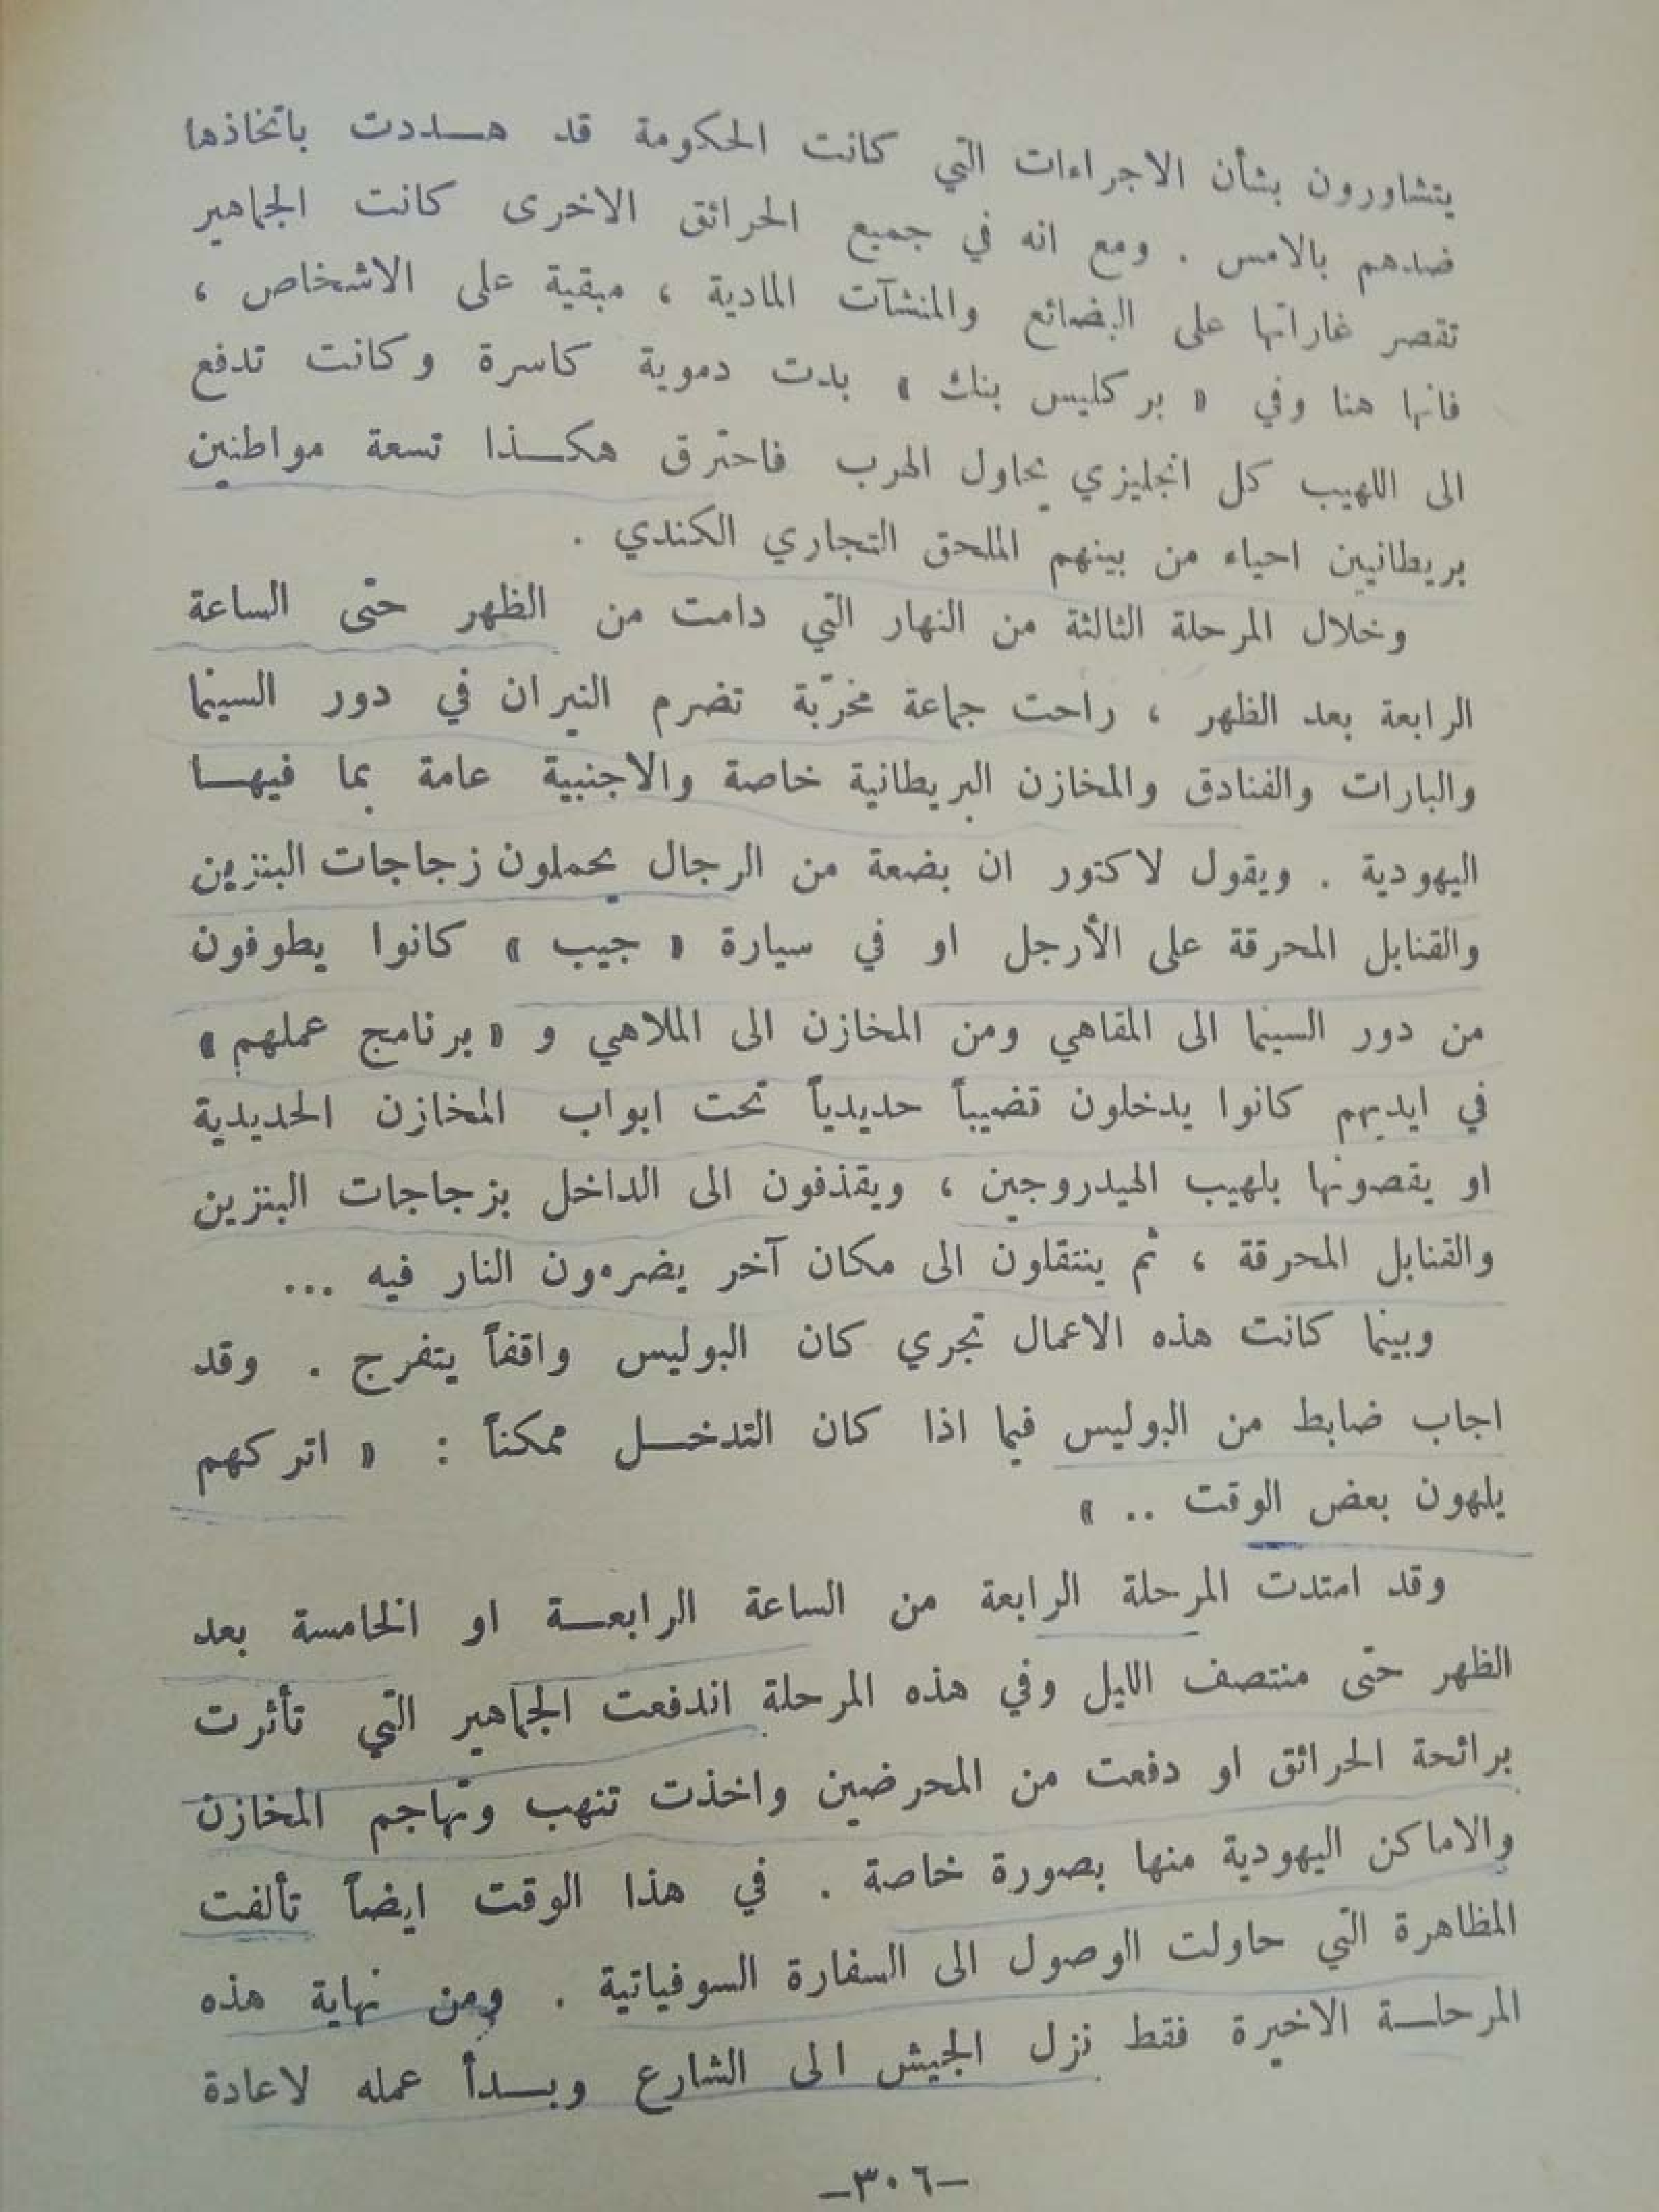 يتشاورون بشأن الاجراءات التي كانت الحكومة قد هـددت باتخاذها
ضدهم بالامس . ومع انه في جميع الحرائق الاخرى كانت الجماهير
تقصر غاراتها على البضائع والمنشآت المادية ، مبقية على الاشخاص ،
فانها هنا وفي « بركليس بنك » بدت دموية كاسرة وكانت تدفع
الى اللهيب كل انجليزي يحاول الهرب فاحترق هكـذا تسعة مواطنين
بريطانيين احياء من بينهم الملحق التجاري الكندي .
وخلال المرحلة الثالثة من النهار التي دامت من الظهر حتى الساعة
الرابعة بعد الظهر ، راحت جماعة مخرّبة تضرم النيران في دور السينما
والبارات والفنادق والمخازن البريطانية خاصة والاجنبية عامة بما فيهـا
اليهودية . ويقول لاكتور ان بضعة من الرجال يحملون زجاجات البنزين
والقنابل المحرقة على الأرجل او في سيارة « جيب » كانوا يطوفون
من دور السينما الى المقاهي ومن المخازن الى الملاهي و « برنامج عملهم »
في ايديهم كانوا يدخلون قضيباً حديدياً تحت ابواب المخازن الحديدية
او يقصونها بلهيب الهيدروجين ، ويقذفون الى الداخل بزجاجات البنزين
والقنابل المحرقة ، ثم ينتقلون الى مكان آخر يضرمون النار فيه ...
وبينما كانت هذه الاعمال تجري كان البوليس واقفاً يتفرج . وقد
اجاب ضابط من البوليس فيما اذا كان التدخـل ممكناً : « اتركهم
يلهون بعض الوقت .. »
وقد امتدت المرحلة الرابعة من الساعة الرابعـة او الخامسة بعد
الظهر حتى منتصف الليل وفي هذه المرحلة اندفعت الجماهير التي تأثرت
برائحة الحرائق او دفعت من المحرضين واخذت تنهب وتهاجم المخازن
والاماكن اليهودية منها بصورة خاصة . في هذا الوقت ايضاً تألفت
المظاهرة التي حاولت الوصول الى السفارة السوفياتية . ومن نهاية هذه
المرحلـة الاخيرة فقط نزل الجيش الى الشارع وبـدأ عمله لاعادة
–٣٠٦–